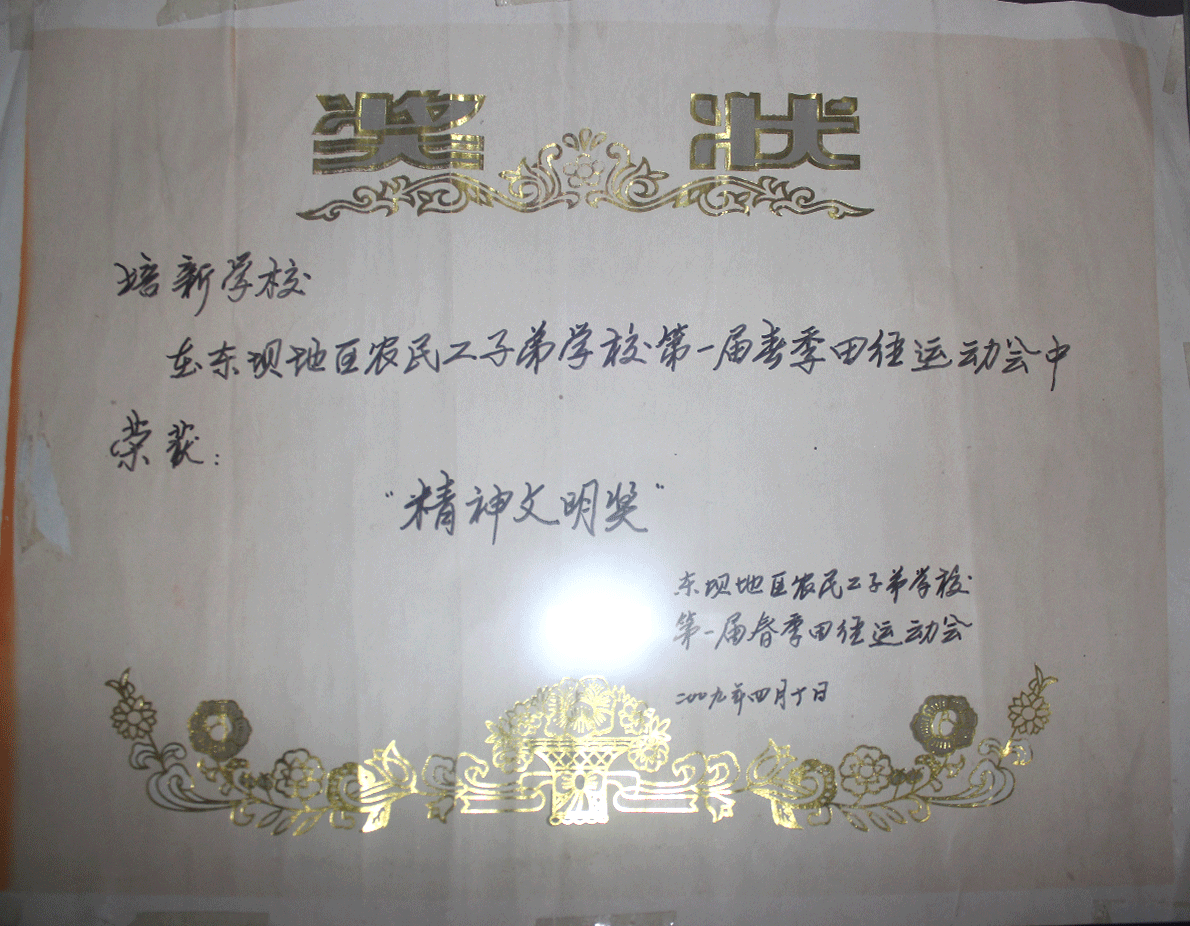 奖状
培新学校
在东坝地区农民工子弟学校第一届春季田径运动会中
荣获：
“精神文明奖”
东坝地区农民工子弟学校
第一届春季田径运动会
二00九年四月十日